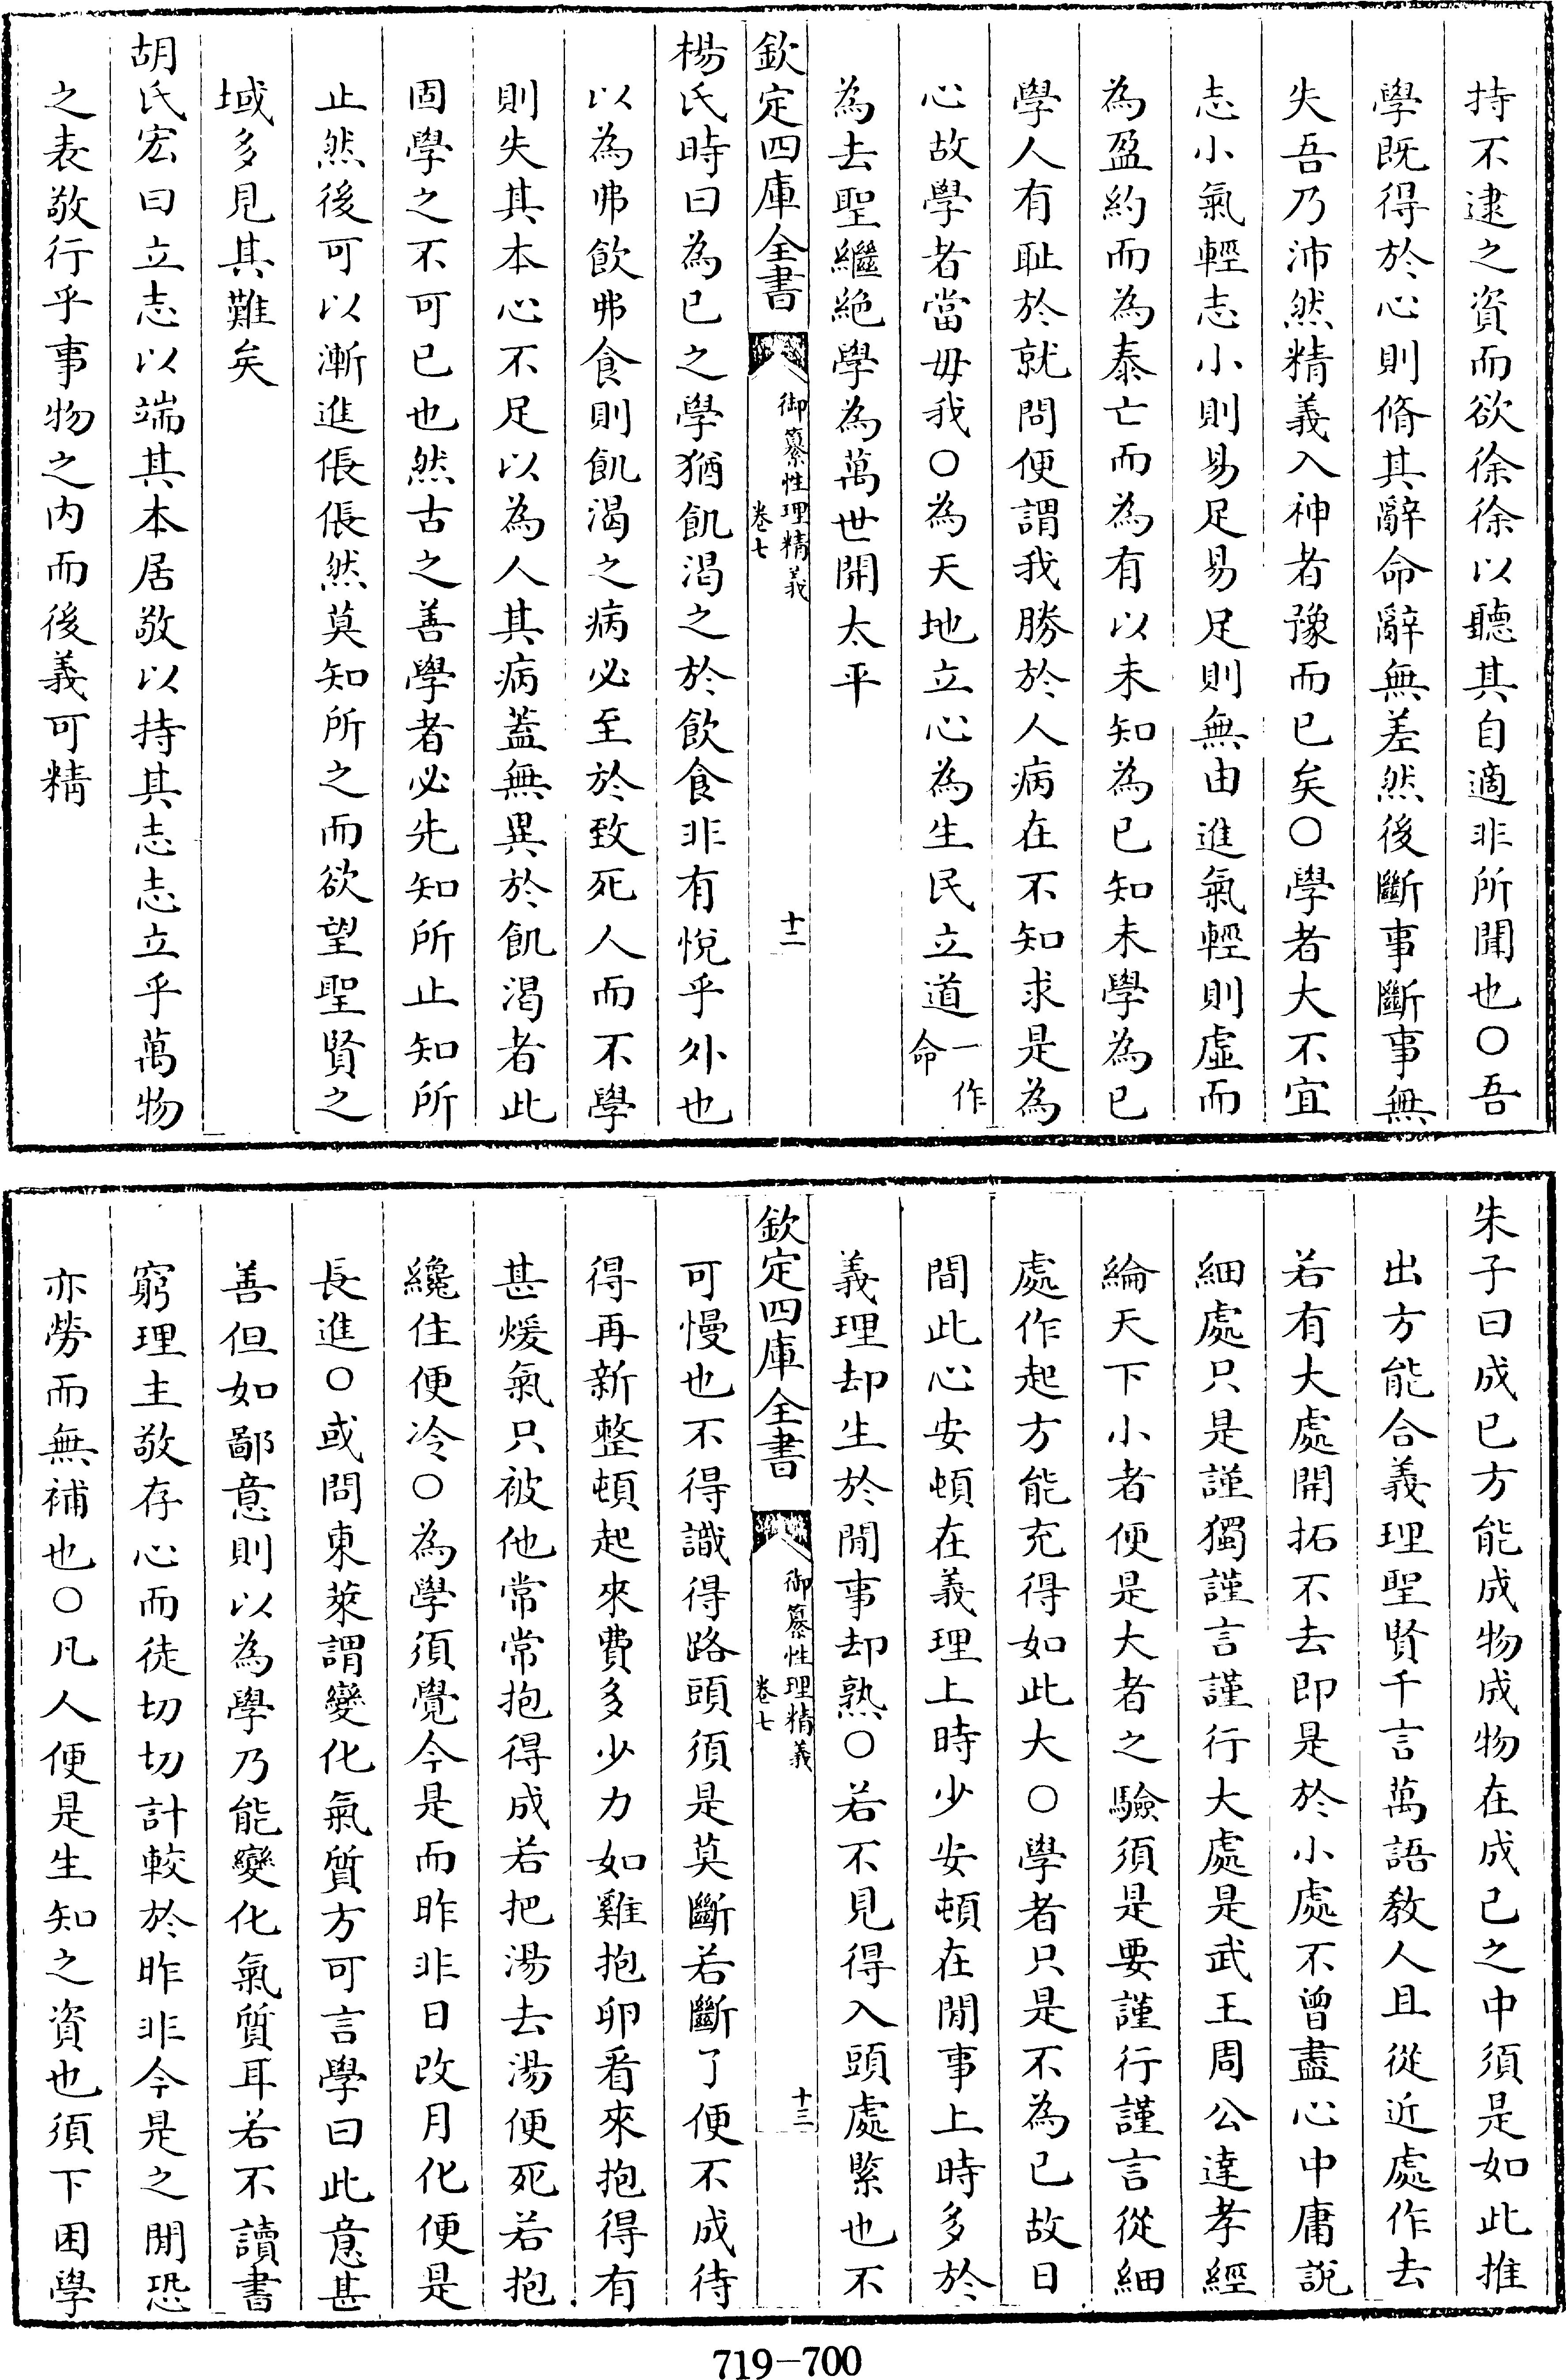 持不逮之資而欲徐徐以聽其自適非所聞也〇吾
學既得於心則脩其辭命辭無差然後斷事斷事無
失吾乃沛然精義入神者豫而已矣〇學者大不宜
志小氣輕志小則易足易足則無由進氣輕則虛而
為盈約而為泰亡而為有以未知為已知未學為已
學人有恥於就問便謂我勝於人病在不知求是為
心故學者當毋我〇為天地立心為生民立道一作命
為去聖繼絶學為萬世開太平
欽定四庫全書
御纂性理精義
卷七
十二
楊氏時曰為已之學猶飢渴之於飲食非有悅乎外也
以為弗飲弗食則飢渴之病必至於致死人而不學
則失其本心不足以為人其病蓋無異於飢渴者此
固學之不可已也然古之善學者必先知所止知所
止然後可以漸進倀倀然莫知所之而欲望聖賢之
域多見其難矣
胡氏宏曰立志以端其本居敬以持其志志立乎萬物
之表敬行乎事物之内而後義可精
朱子曰成已方能成物成物在成已之中須是如此推
出方能合義理聖賢千言萬語教人且從近處作去
若有大處開拓不去即是於小處不曾盡心中庸說
細處只是謹獨謹言謹行大處是武王周公達孝經
綸天下小者便是大者之驗須是要謹行謹言從細
處作起方能充得如此大〇學者只是不為已故日
間此心安頓在義理上時少安頓在閒事上時多於
義理却生於閒事却熟〇若不見得入頭處緊也不
欽定四庫全書
御纂性理精義
卷七
十三
可慢也不得識得路頭須是莫斷若斷了便不成待
得再新整頓起來費多少力如雞抱卵看來抱得有
甚煖氣只被他常常抱得成若把湯去湯便死若抱
纔住便冷〇為學須覺今是而昨非日改月化便是
長進〇或問東萊謂變化氣質方可言學曰此意甚
善但如鄙意則以為學乃能變化氣質耳若不讀書
窮理主敬存心而徒切切計較於昨非今是之閒恐
亦勞而無補也〇凡人便是生知之資也須下困學
719-700